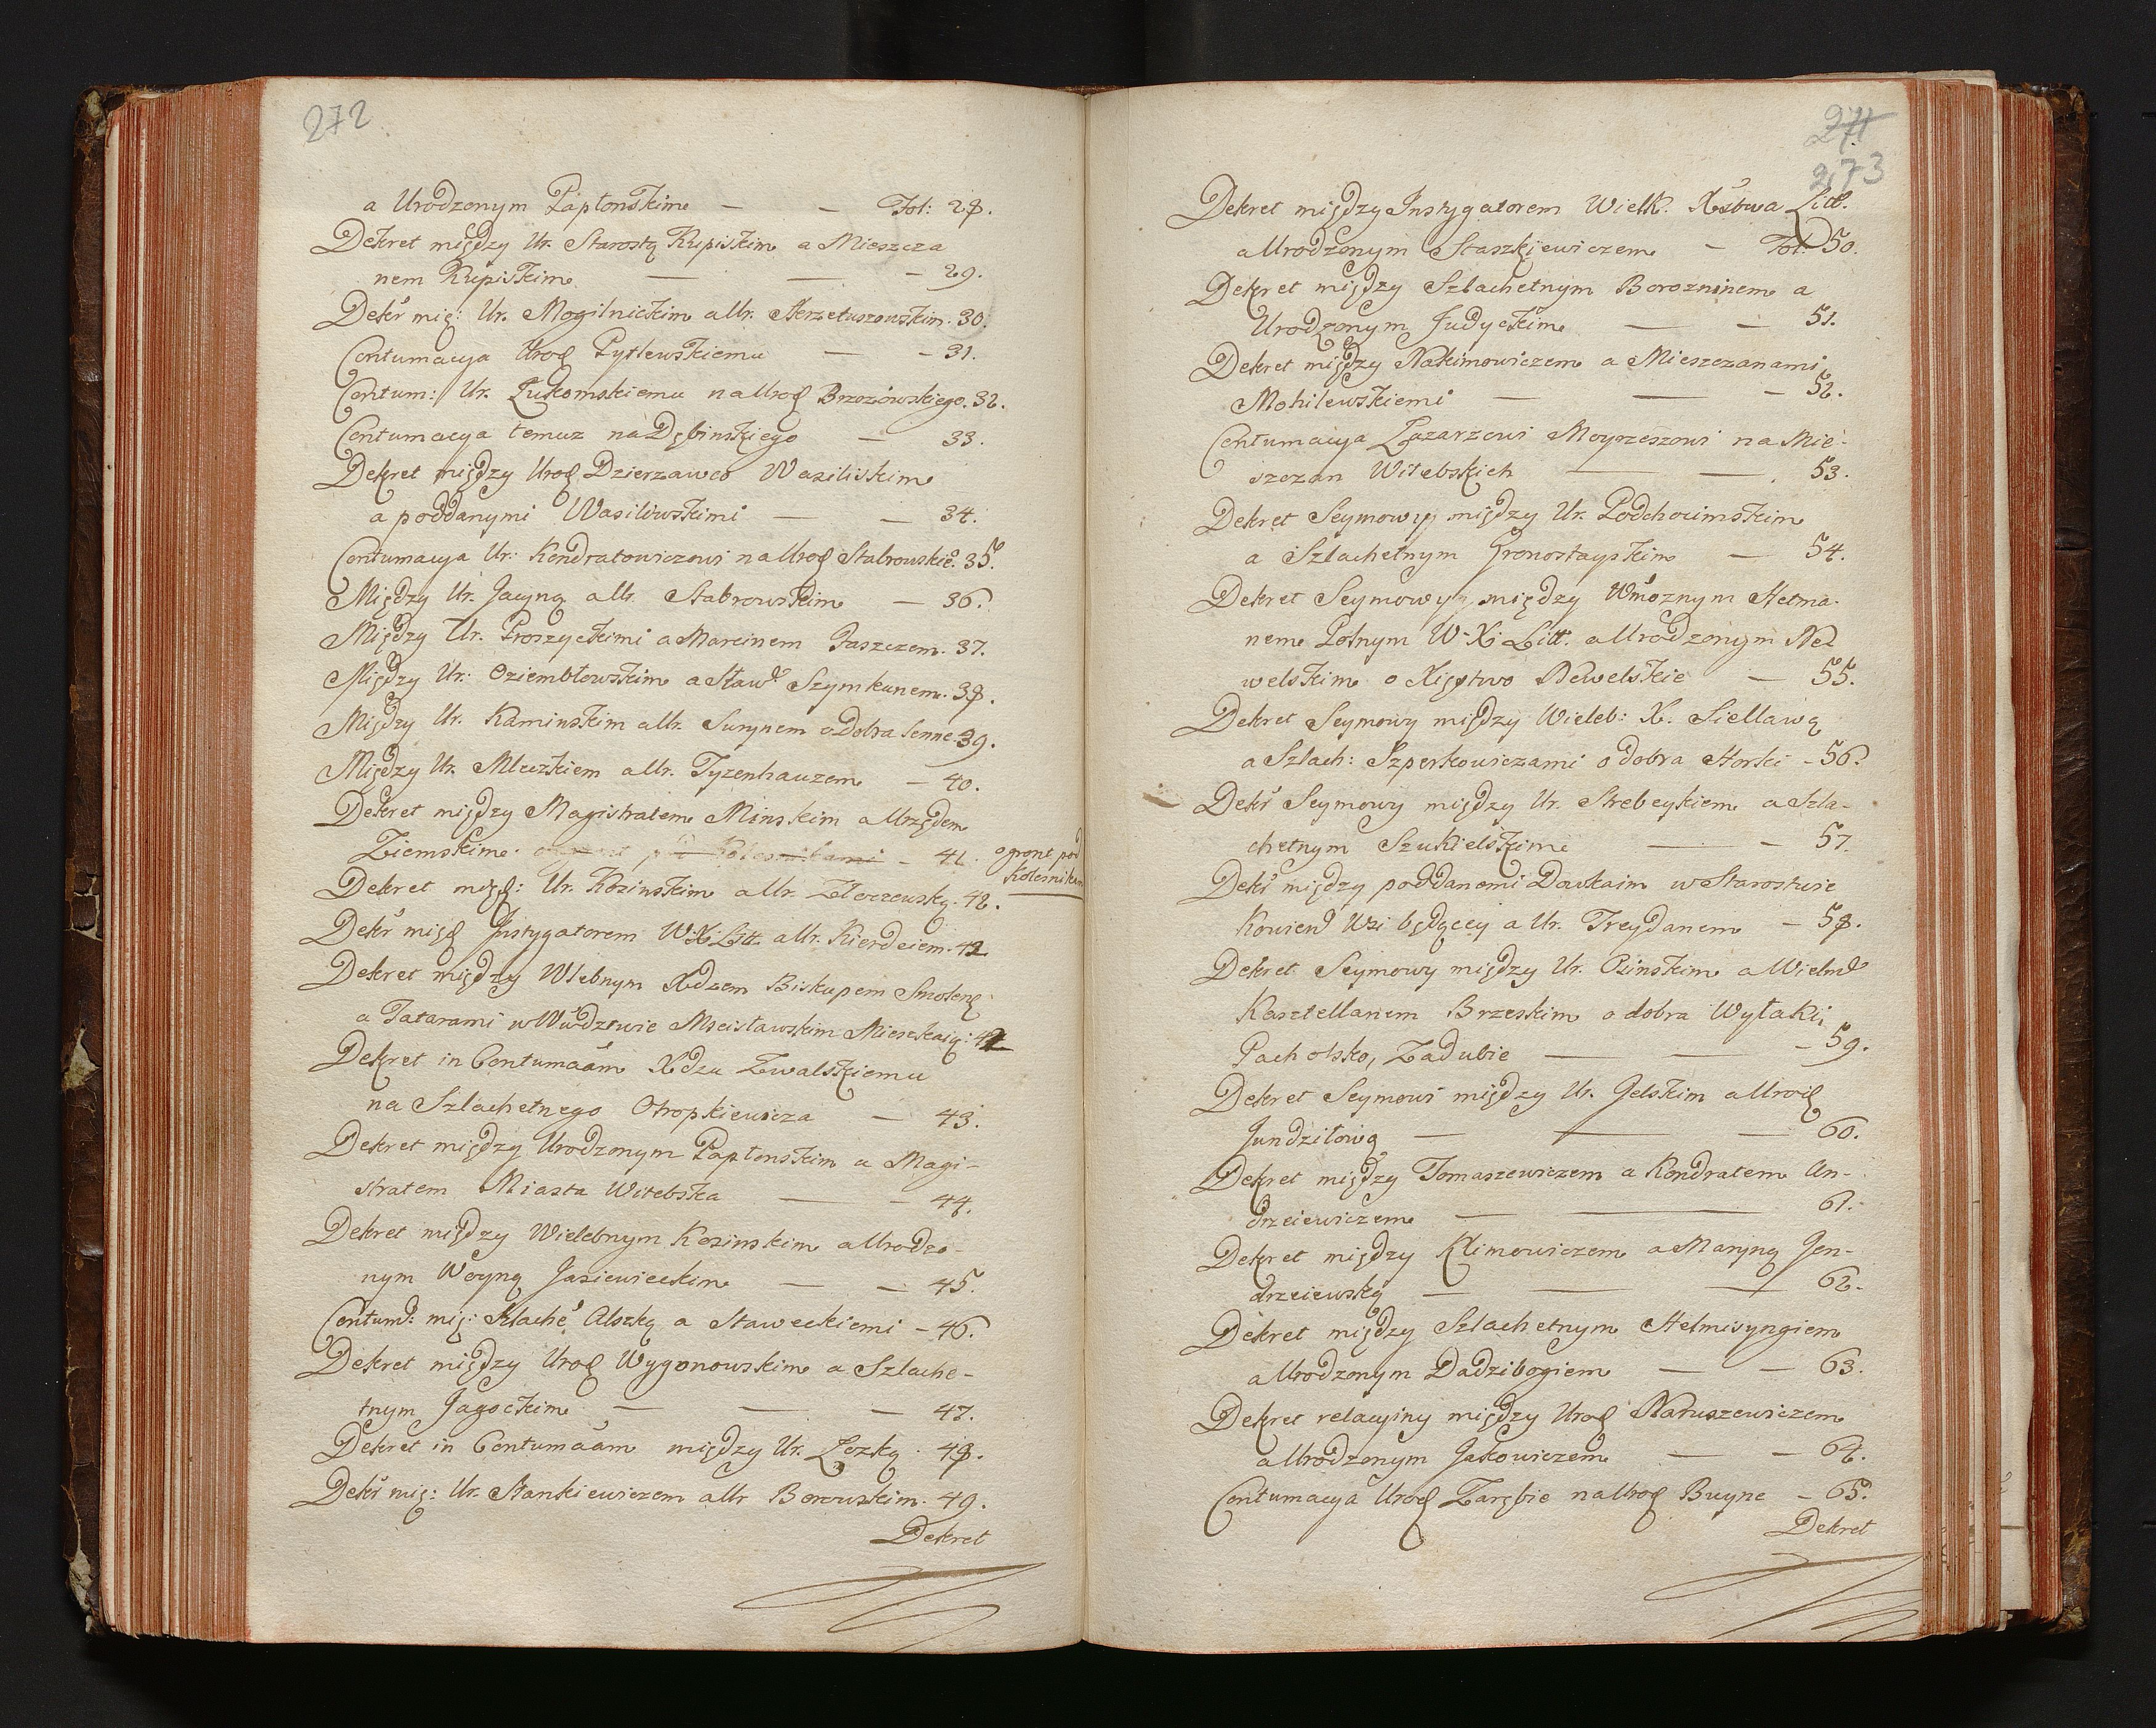 272
a Urodzonym Paplonskim — — Fol: 28.
Dekret między Ur. Starostą Kupiskim a Mieszcza
nem Kupiskim — — – 29.
Dekr̃ mię: Ur. Mogilnickim a Ur. Skrzetuszowskim. 30.
Contumacya Urod Pytlewskiemu — – 31.
Contum: Ur. Łukomskiemu na Urod Brzozowskiego. 32.
Contumacya temuz na Dębinskiego — 33.
Dekret między Urod Dzierzawco Wasiliskim
a poddanymi Wasiliwskimi — — 34.
Contumacya Ur: Kondratowiczowi na Urod Stabrowskie. 35.
Między Ur. Jacyną a Ur. Stabrowskim — 36.
Między Ur. Proszyckimi a Marcinem Paszczem. 37.
Między Ur: Oziembłowskim a Staw Szymkunem. 38.
Między Ur. Kaminskim a Ur. Surynem o dobra Senne. 39.
Między Ur. Mluzkiem a Ur. Tyzenhauzem — 40.
Dekret między Magistratem Minskim a Urzędem
Ziemskim – 41. o gront pod
Kolesnikam
Dekret międ: Ur. Kozinskim a Ur. Zloczewską. 42.
Dekr̃ międ Instygatorem W.X.Litt. a Ur. Kierdeiem. 42
Dekret między Wlebnym Xdzem Biskupem Smolen
a Tatarami w Wwdztwie Mscisławskim Mieszkaią: 42
Dekret in Contumaam Xdzu Zwalskiemu
na Szlachetnego Otropkiewicza — 43.
Dekret między Urodzonym Paplonskim a Magi-
stratem Miasta Witebska — – 44.
Dekret między Wielebnym Kozinskim a Urodzo-
nym Woyną Jasiewieckim — — 45.
Contum: mię: Szlache Alszką a Staweckiemi – 46.
Dekret między Urod Wygonowskim a Szlache-
tnym Jagockim — — — 47.
Dekret in Contumaam między Ur. Łozką. 48.
Dekr̃ mię: Ur. Stankiewiczem a Ur Borowskim. 49.
Dekret
271
273
Dekret między Instygatorem Wielk. Xstwa Litt.
a Urodzonym Staszkiewiczem – Fol. 50.
Dekret między Szlachetnym Borozninem a
Urodzonym Judyckim — — 51.
Dekret między Nakimowiczem a Mieszczanami
Mohilewskiemi — — – 52.
Contumacya Łazarzowi Moyzeszowi na Mie-
szczan Witebskich — — 53.
Dekret Seymowy między Ur. Podchocimskim
a Szlachetnym Gronostayskim — 54.
Dekret Seymowy między Wmoznym Hetma-
nem Polnym W. X. Litt. a Urodzonym New
welskim o Xięstwo Newelskie — 55.
Dekret Seymowy między Wieleb: X. Siellawą
a Szlach: Szperkowiczami o dobra Horki – 56.
Dekr̃ Seymowy między Ur. Strebeykiem a Szla-
chetnym Szukielskim — – 57.
Dekr̃ między poddanemi Dowkaim w Starostwie
Kowien Wsi będącey a Ur. Treydanem – 58.
Dekret Seymowy między Ur. Osinskim a Wielm
Kasztellanem Brzeskim o dobra Wytaki,
Pacholsko, Zadubie — — – 59.
Dekret Seymowi między Ur. Gelskim a Urod
Jundziłową — — — 60.
Dekret między Tomaszewiczem a Kondratem An-
drzeiewiczem — — 61.
Dekret między Klimowiczem a Maryną Jen-
drzeiewską — — — 62.
Dekret między Szlachetnym Helmisyngiem
a Urodzonym Dadzibogiem — — 63.
Dekret relacyiny między Urod Naruszewiczem
a Urodzonym Jakowiczem — – 64.
Contumacya Urod Zarębie na Urod Buyne – 65.
Dekret